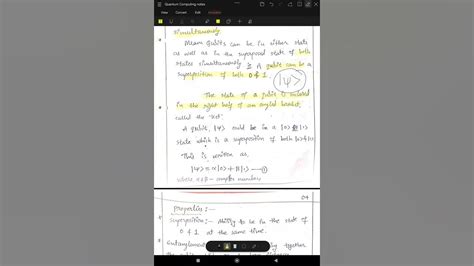 Quantum Computing notes
simultaneously
Mean Qubits can be in either state
as well as in the superposed state of both
states simultaneously A qubit can be a
superposition of both 0 & 1.
|ψ>
The state of a qubit is enclosed
in the right half of an angled bracket,
called the 'ket'.
A qubit, |ψ> could be in a |0> |1>
state which is a superposition of both |0> & |1>
This is written as,
|ψ> = α|0> + β|1> —
where α & β - complex numbers
04
properties:-
superposition:- Ability to be in the state of
0 & 1 at the same time.
Entanglement together